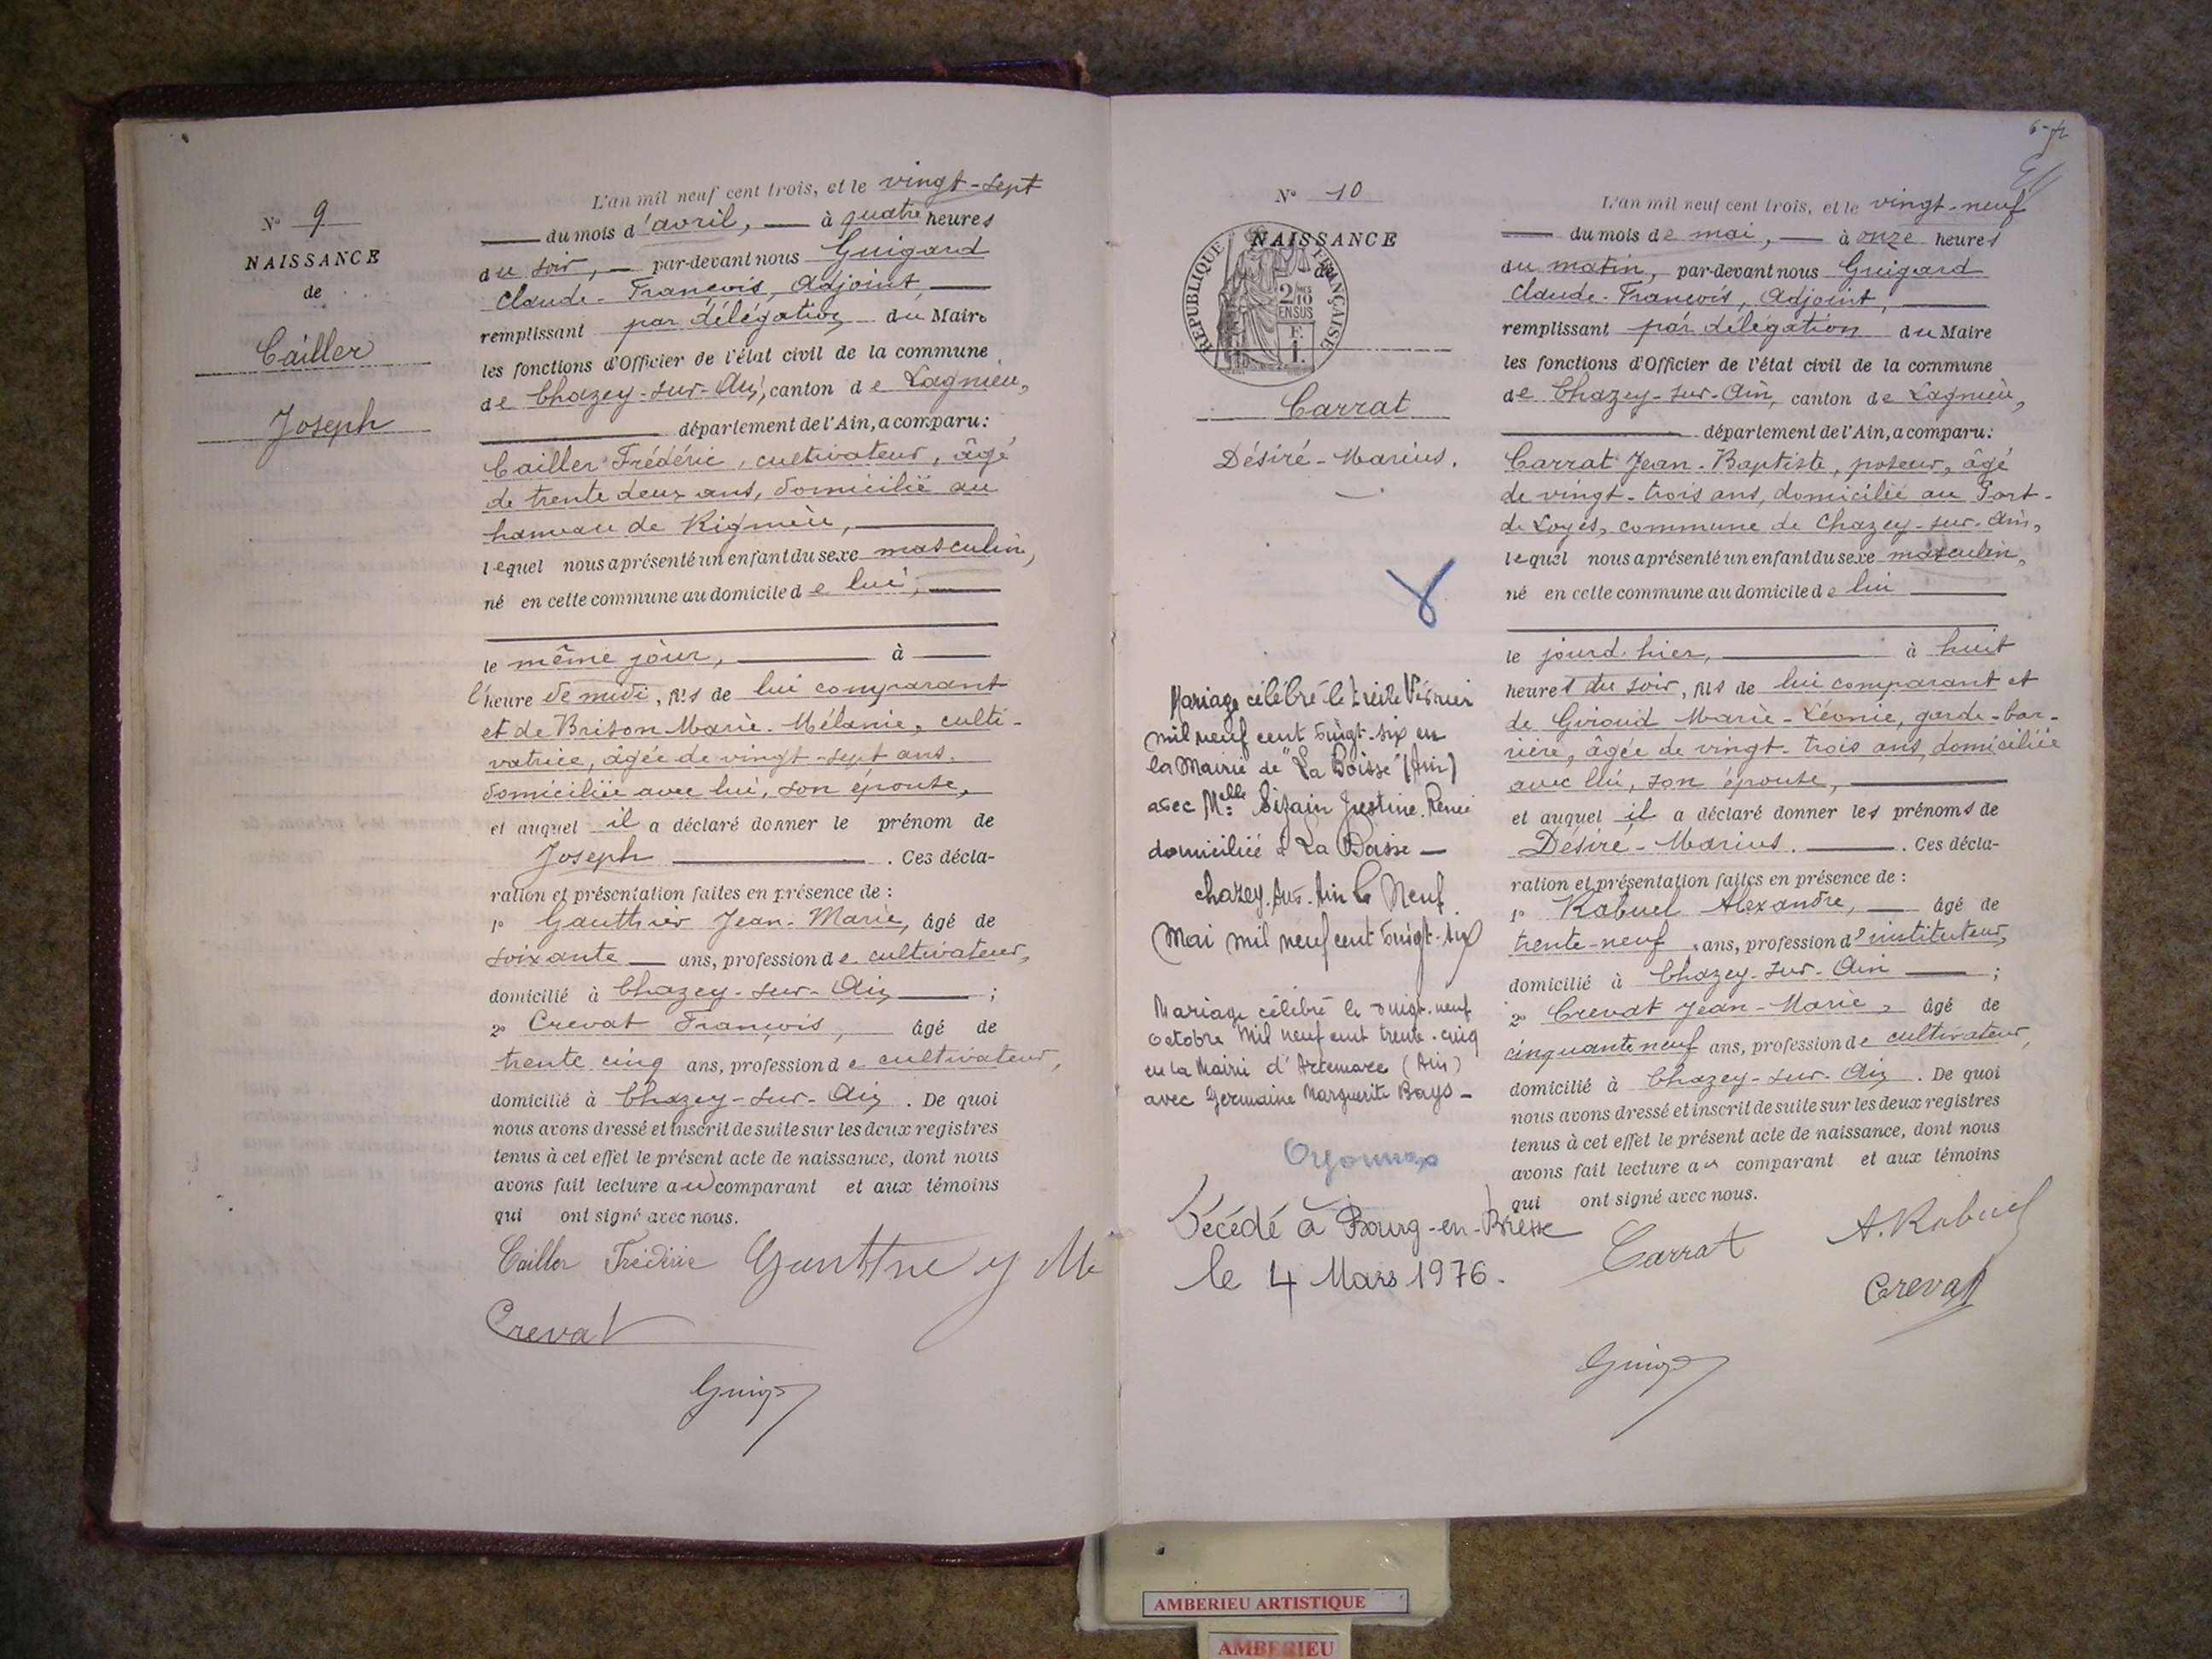 N° 9
NAISSANCE
de
Cailler
Joseph
L'an mil neuf cent trois, et le vingt-sept
du mois d'avril, à quatre heures
du soir, par-devant nous Guigard
Claude-François, Adjoint,
remplissant par délégation du Maire
les fonctions d'Officier de l'état civil de la commune
de Chazey-sur-Ain, canton de Lagnieu,
département de l'Ain, a comparu:
Cailler Frédéric, cultivateur, âgé
de trente deux ans, domicilié au
hameau de Rignieu,
lequel nous a présenté un enfant du sexe masculin,
né en cette commune au domicile de lui,
le même jour, à
l'heure de midi, fils de lui comparant
et de Brison Marie-Mélanie, culti-
vatrice, âgée de vingt-sept ans,
domiciliée avec lui, son épouse,
et auquel il a déclaré donner le prénom de
Joseph . Ces décla-
ration et présentation faites en présence de :
1° Gauthier Jean-Marie, âgé de
soixante ans, profession de cultivateur,
domicilié à Chazey-sur-Ain ;
2° Crevat François, âgé de
trente cinq ans, profession de cultivateur,
domicilié à Chazey-sur-Ain . De quoi
nous avons dressé et inscrit de suite sur les deux registres
tenus à cet effet le présent acte de naissance, dont nous
avons fait lecture au comparant et aux témoins
qui ont signé avec nous.
Cailler Frédéric
Crevat
N° 10
NAISSANCE
de
RÉPUBLIQUE FRANÇAISE
2/10
EN SUS
Carrat
Désiré-Marius.
Mariage célébré le treize Février
mil neuf cent vingt-six en
la Mairie de "La Boisse" (Ain)
avec Melle Sizain Justine Renée
domiciliée à La Boisse —
Chazey-sur-Ain le Neuf
Mai mil neuf cent vingt-six
Mariage célébré le vingt-neuf
octobre mil neuf cent trente-cinq
en la Mairie d'Artemare (Ain)
avec Germaine Marguerite Bays —
Oyonnax
Décédé à Bourg-en-Bresse
le 4 Mars 1976.
L'an mil neuf cent trois, et le vingt-neuf
du mois de mai, à onze heures
du matin, par-devant nous Guigard
Claude-François, Adjoint,
remplissant par délégation du Maire
les fonctions d'Officier de l'état civil de la commune
de Chazey-sur-Ain, canton de Lagnieu,
département de l'Ain, a comparu:
Carrat Jean-Baptiste, poseur, âgé
de vingt-trois ans, domicilié au Port-
de Loyes, commune de Chazey-sur-Ain,
lequel nous a présenté un enfant du sexe masculin,
né en cette commune au domicile de lui
le jourd'hier, à huit
heures du soir, fils de lui comparant et
de Giroud Marie-Léonie, garde-bar-
rière, âgée de vingt-trois ans, domiciliée
avec lui, son épouse,
et auquel il a déclaré donner les prénoms de
Désiré-Marius. . Ces décla-
ration et présentation faites en présence de :
1° Rabuel Alexandre, âgé de
trente-neuf ans, profession d'instituteur,
domicilié à Chazey-sur-Ain ;
2° Crevat Jean-Marie, âgé de
cinquante neuf ans, profession de cultivateur,
domicilié à Chazey-sur-Ain . De quoi
nous avons dressé et inscrit de suite sur les deux registres
tenus à cet effet le présent acte de naissance, dont nous
avons fait lecture au comparant et aux témoins
qui ont signé avec nous.
Carrat A. Rabuel
Crevat
AMBERIEU ARTISTIQUE
AMBERIEU